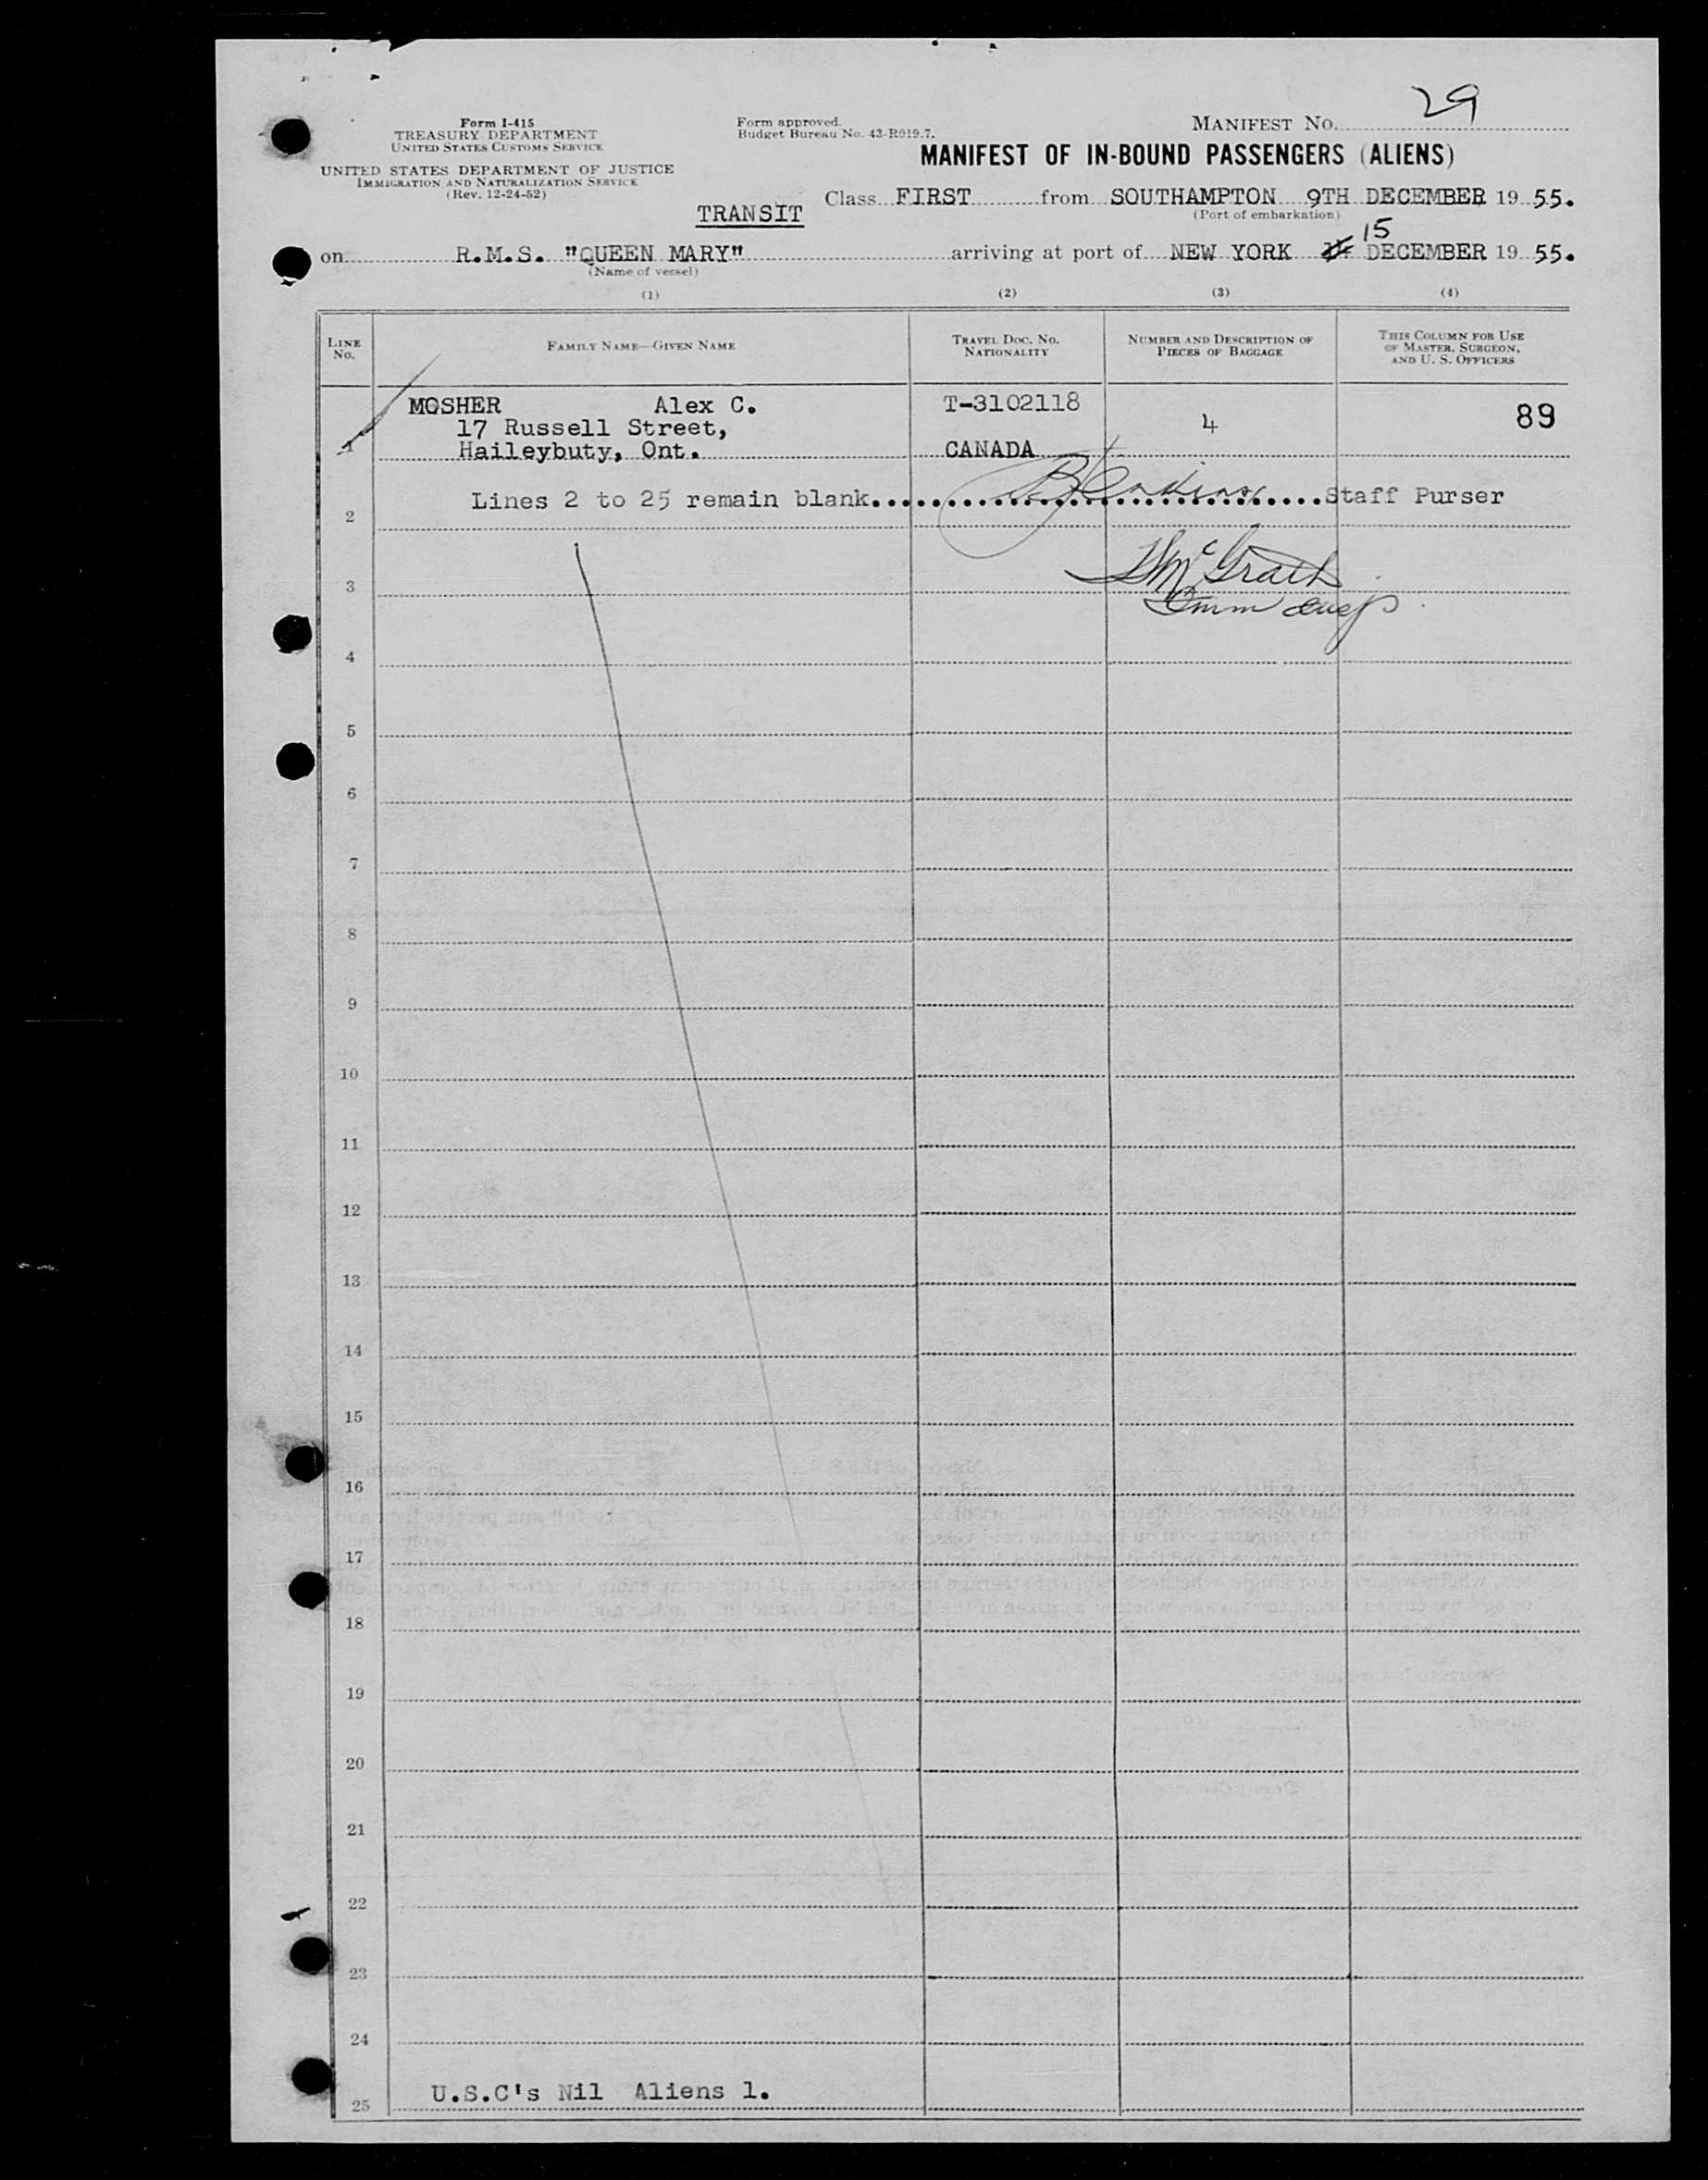 29
Form I-415
TREASURY DEPARTMENT
UNITED STATES CUSTOMS SERVICE
UNITED STATES DEPARTMENT OF JUSTICE
IMMIGRATION AND NATURALIZATION SERVICE
(Rev. 12-24-52)
Form approved.
Budget Bureau No. 43-R019.7.
MANIFEST No.
MANIFEST OF IN-BOUND PASSENGERS (ALIENS)
Class FIRST from SOUTHAMPTON 9TH DECEMBER 19 55.
(Port of embarkation)
TRANSIT
15
on R.M.S. "QUEEN MARY" arriving at port of NEW YORK DECEMBER 19 55.
(Name of vessel)
(1) (2) (3) (4)
LINE No. FAMILY NAME—GIVEN NAME TRAVEL DOC. NO. NATIONALITY NUMBER AND DESCRIPTION OF PIECES OF BAGGAGE THIS COLUMN FOR USE OF MASTER, SURGEON, AND U. S. OFFICERS
MOSHER Alex C. T-3102118 4 89
17 Russell Street,
1 Haileybuty, Ont. CANADA
Lines 2 to 25 remain blank Staff Purser
2
McGrath
3
Imm
4
5
6
7
8
9
10
11
12
13
14
15
16
17
18
19
20
21
22
23
24
U.S.C's Nil Aliens 1.
25